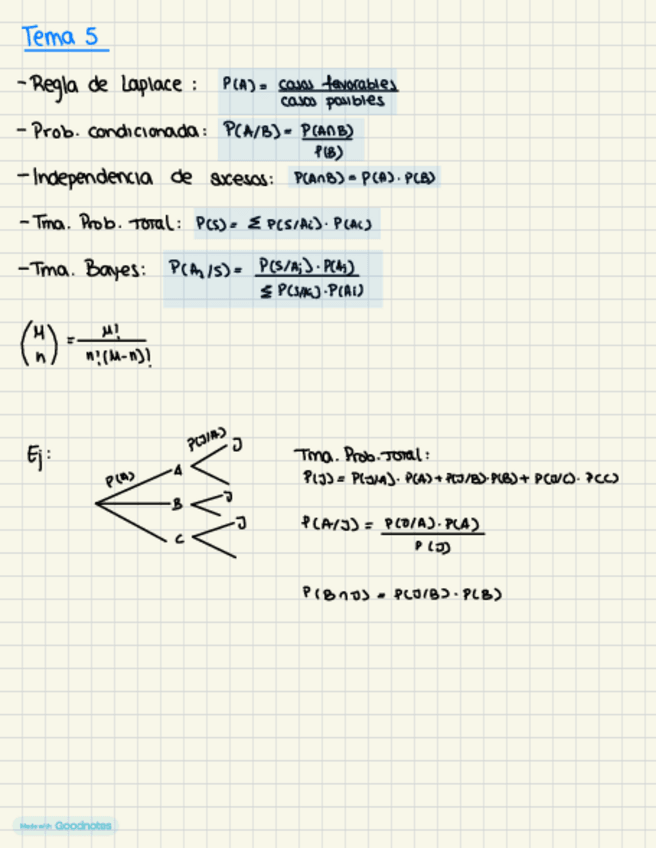 Tema 5
- Regla de Laplace : P(A) = casos favorables / casos posibles
- Prob. condicionada: P(A/B) = P(A∩B) / P(B)
- Independencia de sucesos: P(A∩B) = P(A) · P(B)
- Tma. Prob. Total: P(S) = Σ P(S/Ai) · P(Ai)
- Tma. Bayes: P(Aj/S) = P(S/Aj) · P(Aj) / Σ P(S/Ai) · P(Ai)
(M n) = M! / n!(M-n)!
Ej:
P(A) A P(J/A) J
B J
C J
Tma. Prob. Total:
P(J) = P(J/A) · P(A) + P(J/B) · P(B) + P(J/C) · P(C)
P(A/J) = P(J/A) · P(A) / P(J)
P(B∩J) = P(J/B) · P(B)
Made with Goodnotes